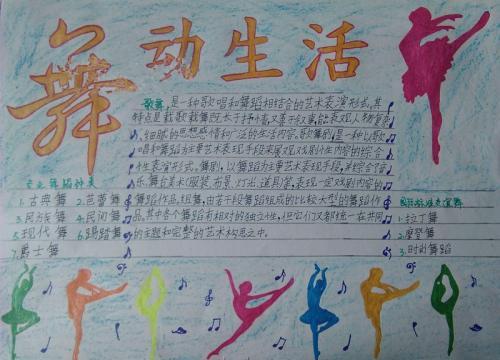 舞动生活
歌舞,是一种歌唱和舞蹈相结合的艺术表演形式,其
特点是载歌载舞既长于抒情,又善于叙事,能表现人物复杂
、细腻的思想感情和广泛的生活内容。歌舞剧是一种以歌
唱和舞蹈为主要艺术表现手段来展现戏剧性内容的综合
性表演形式。舞剧,以舞蹈为主要艺术表现手段,并综合了音
乐、舞台美术(服装、布景、灯光、道具)等,表现一定戏剧内容的
舞蹈作品。组舞,由若干段舞蹈组成的比较大型的舞蹈作
品,其中各个舞蹈有相对的独立性,但它们又都统一在共同
的主题和完整的艺术构思之中。
舞蹈种类
1.古典舞 2.芭蕾舞
3.民族舞 4.民间舞
5.现代舞 6.踢踏舞
7.爵士舞
国际标准交谊舞
1.拉丁舞
2.摩登舞
3.时尚舞蹈